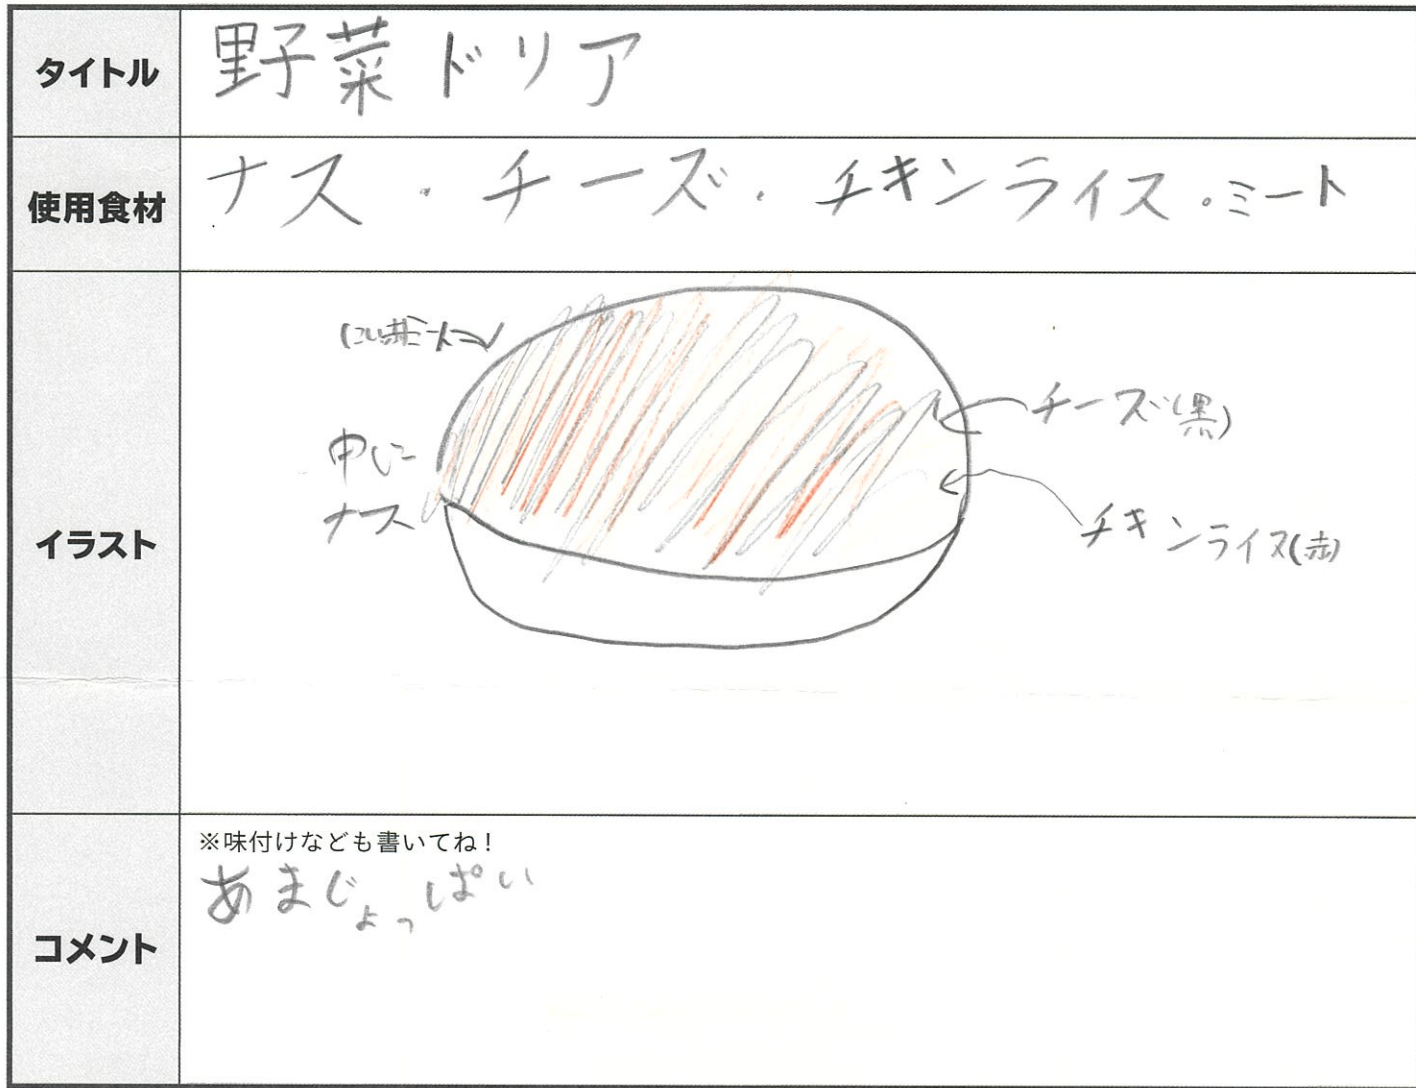 タイトル
野菜ドリア
使用食材
ナス・チーズ・チキンライス・ミート
イラスト
ミート
中に
ナス
チーズ(黒)
チキンライス(赤)
コメント
※味付けなども書いてね!
あまじょっぱい